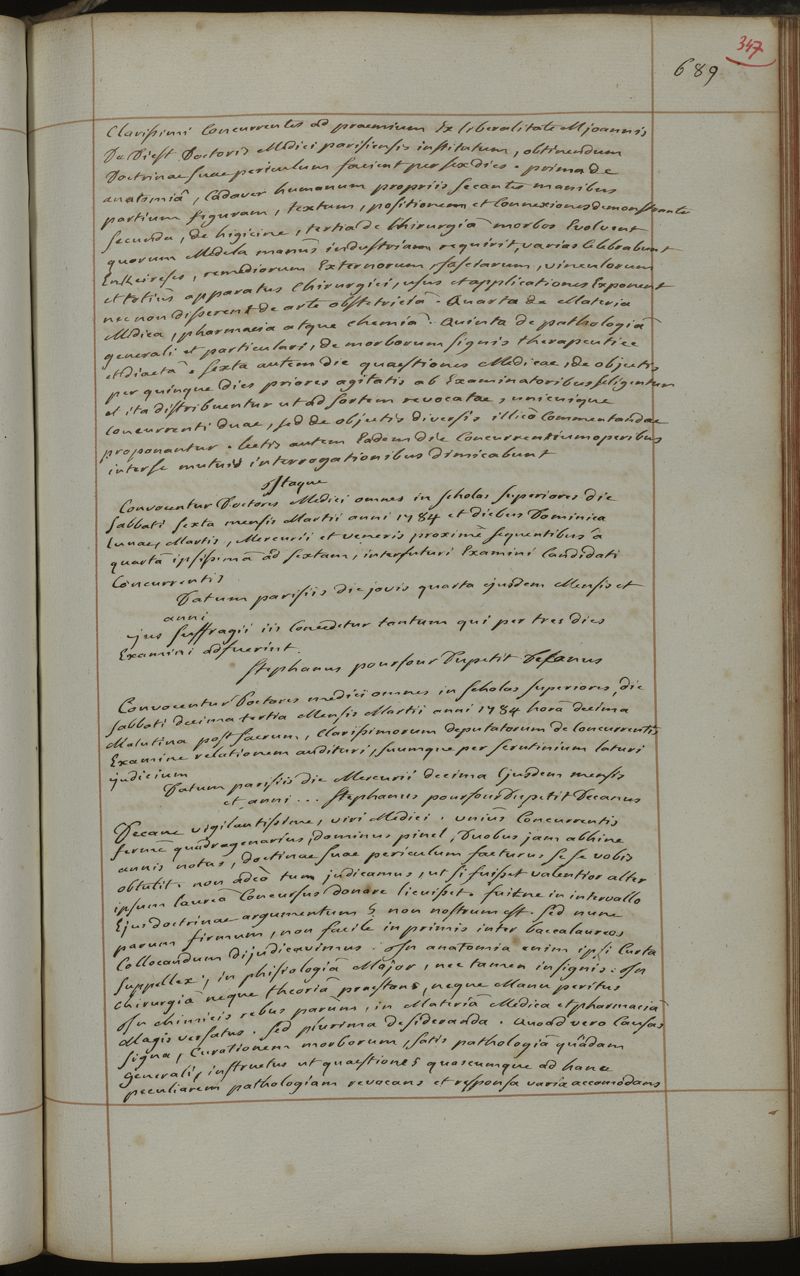 347
689
Clarissimi Concurrentes ad praemium Ex liberalitate M joannis
De Diest Doctoris Medici parisiensis institutum, obtinendum
Doctrinae suae periculum facient per sex dies. prima de
anatomiâ, Cadaver humanum propriis secantes manibus
partium figuram, textum, positionem et Connexiones demonstrante
secunda, de higieine, tertia de Chirurgiâ morbos Evolvent
quorum Medela manus industriam requirit, varias Celebrabunt
Enkeireses, remediorum Externorum, fasciarum, vinculorum
et totius apparatus Chirurgici, usus et applicationes Exponent
nec non disserent de arte obstetriciâ. Quarta de Materia
Medica, pharmacia atque chemiâ. Quinta de pathologiâ
generali et particulari, de morborum signis therapeutice
et diaetâ. sexta autem die quaestiones Medicae, de objectis
per quinque dies priores agitatis ab Examinatoribus seligentur
et ita distribuentur ut ad sortem revocatae, unicuique
Concurrenti duae, sed de objectis diversis illicò Commentandae
proponantur. lectis autem Eadem die Concurrentium operibus
inter se mutuis interrogationibus dimicabunt
Itaque
Convocentur Doctores Medici omnes in scholas superiores die
sabbati sexta mensis Martii anni 1784 et diebus Dominica
lunae, Martis, Mercurii et veneris proximè sequentibus a
quartâ ipsissimâ ad sextam, interfuturi Examini Candidati
Concurrentis
Datum parisiis die jovis quarta ejusdem Mensis et
anni
jus suffragii iis Concedetur tantum qui per tres dies
Examini adfuerint.
Stephanus pourfour Dupetit Decanus
Convocentur Doctores medici omnes in scholas superiores, die
sabbati decima tertia Mensis Martii anni 1784 horâ decima
Matutina post sacrum, Clarissimorum deputatorum de Concurrentis
Examine relationem audituri, suumque per scrutinium laturi
judicium
Datum parisiis die Mercurii decima Ejusdem mensis
et anni ... Stephanus pourfour Dupetit Decanus
Decane vigilantissime, viri Medici. unius Concurrentis
fermè quadragenarius, dominus pinel, Duobus jam abhinc
annis notus, doctinae suae periculum facturus se se vobis
obtulit. non adeò tum judicamus, ut si fuisset valentior alter
ipsum laureâ Concursus donare licuisset. fuitne in intervallo
Ejus doctrinae argumentum, non nostrum est. sed nunc
parum firmum, non facile in primis inter baccalaureos
Collocandum dijudicavimus. In anatomia enim ipsi Curta
supellex, in phisiologiâ Major, nec tamen insignis. In
Chirurgiâ neque theoriâ praestans, neque Manu peritus
In chimicis rebus parùm, in Materiâ Medica et pharmaciâ
Magis versatus. sed plurima desideranda. Quoad vero Causas
signa, Curationem morborum, satis pathologiâ quâdam
generali, instructus ut quaestiones quascumque ad hanc
peculiarem pathologiam revocans et responsa varia accomodans